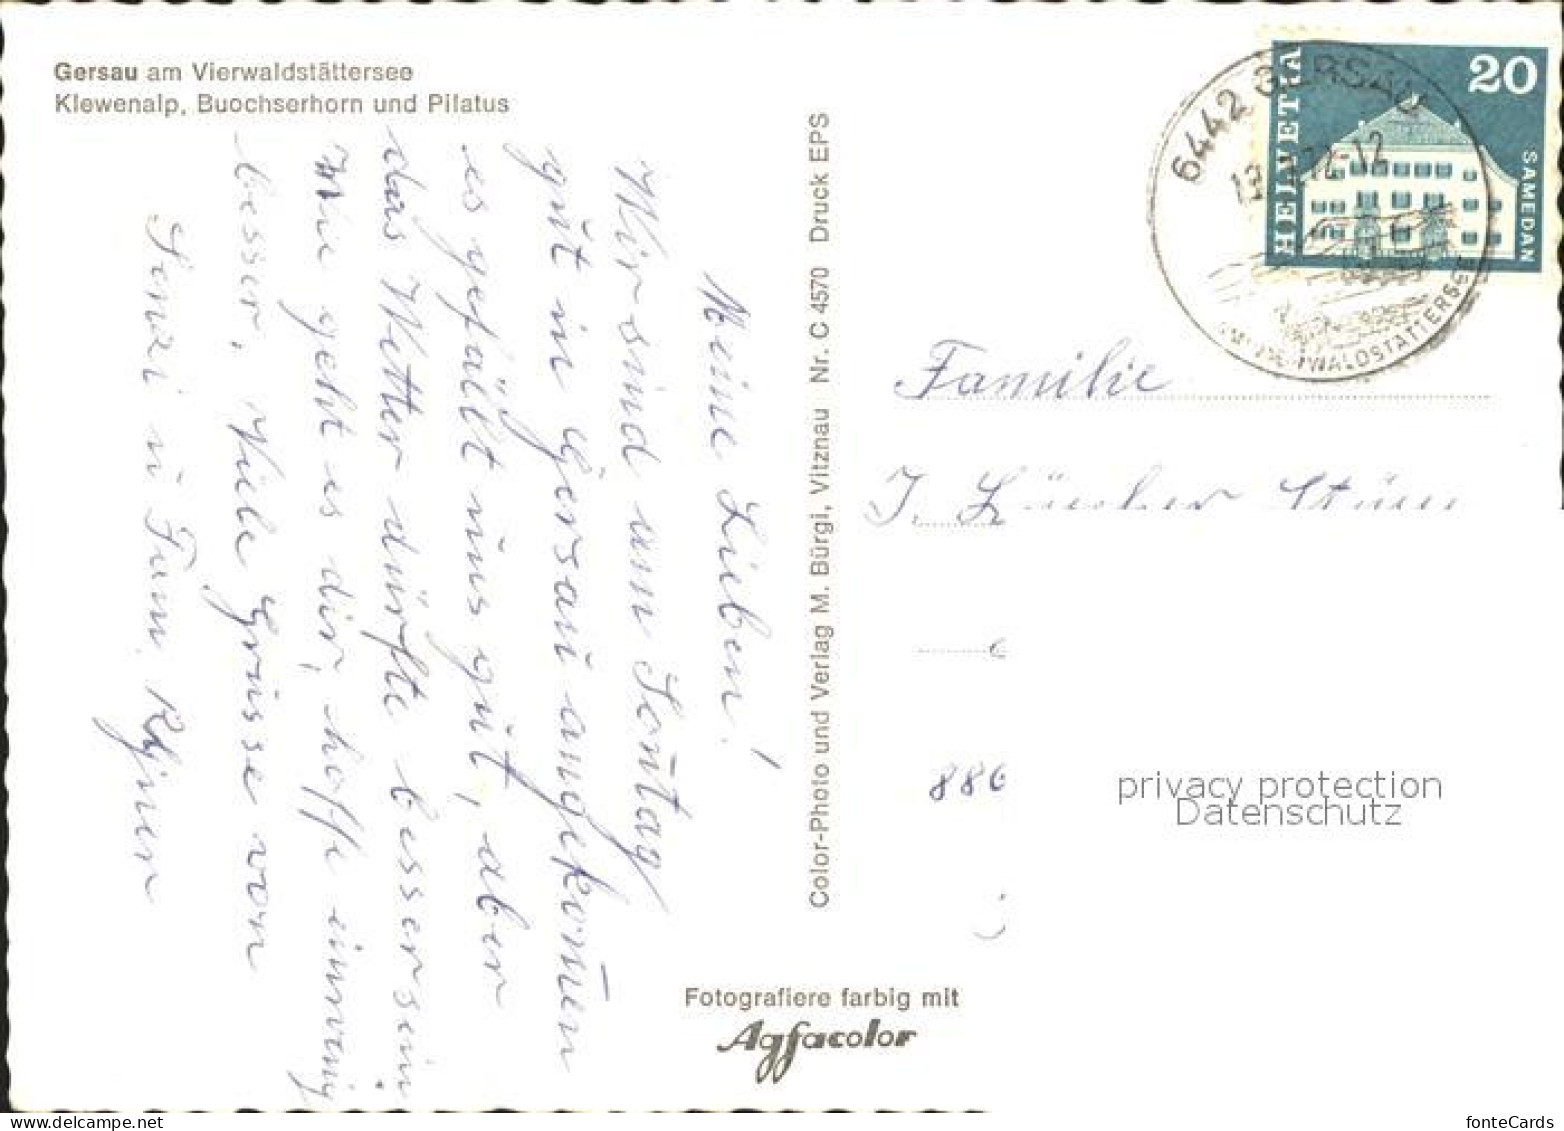 Gersau am Vierwaldstättersee
Klewenalp, Buochserhorn und Pilatus
Meine Lieben!
Wir sind am Son̄tag
gut in Gersau angekom̄en
es gefällt uns gut, aber
das Wetter dürfte besser sein.
Wie geht es dir, hoffe ein wenig
besser, Viele Grüsse von
u Fam.
Color-Photo und Verlag M. Bürgi, Vitznau Nr. C 4570 Druck EPS
Fotografiere farbig mit
Agfacolor
HELVETIA
20
SAMEDAN
6442 GERSAU
VIERWALDSTÄTTERSEE
Familie
J.
886
privacy protection
Datenschutz
www.delcampe.net
fonteCards